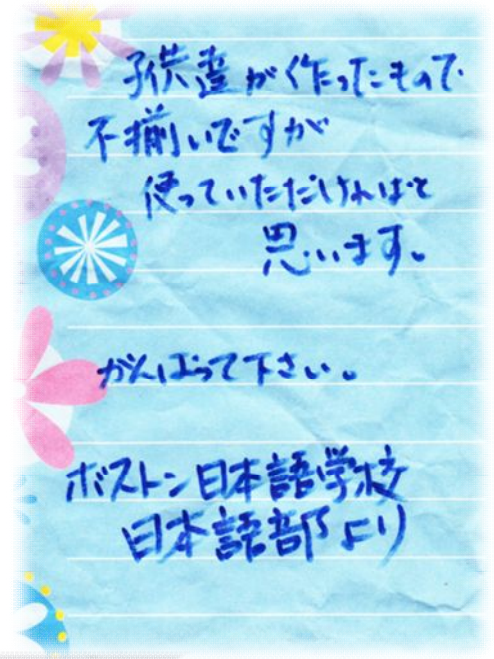 子供達が作ったもので
不揃いですが
使っていただければと
思います。
がんばって下さい。
ボストン日本語学校
日本語部より